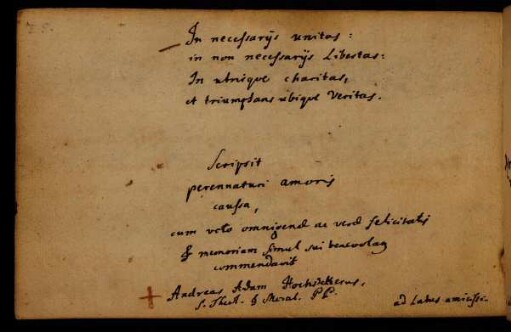 In necessarijs unitas:
in non necessarijs Libertas:
In utrisque charitas,
et triumphans ubique Veritas.
Scripsit
perennaturi amoris
caussa,
cum voto omnigenae ac verae felicitatis
& memoriam simul sui benevolam
commendavit
Andreas Adam Hochstetterus,
S. Theol. & Moral. P.P.